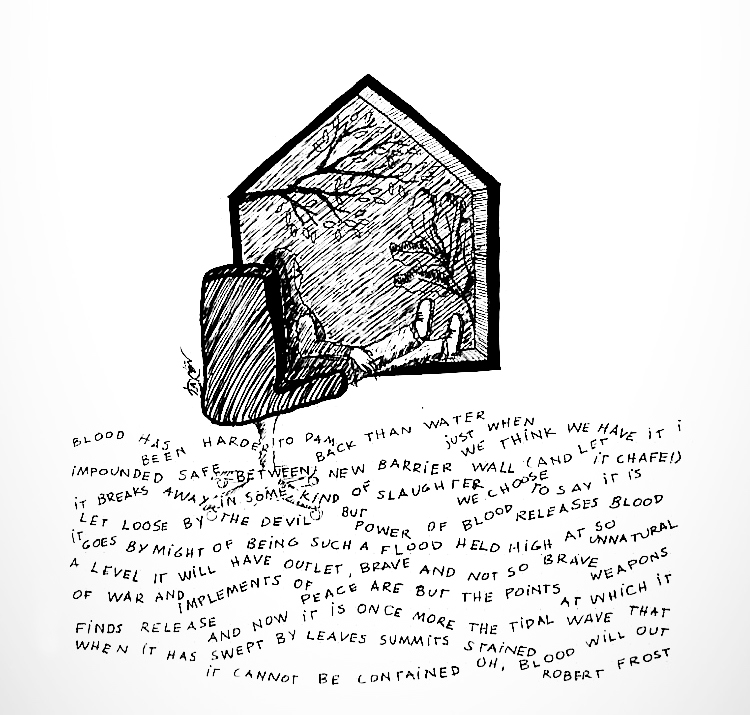 BLOOD HAS BEEN HARDER TO DAM BACK THAN WATER
JUST WHEN WE THINK WE HAVE IT
IMPOUNDED SAFE BETWEEN NEW BARRIER WALL (AND LET IT CHAFE!)
IT BREAKS AWAY IN SOME KIND OF SLAUGHTER WE CHOOSE TO SAY IT IS
LET LOOSE BY THE DEVIL BUT POWER OF BLOOD RELEASES BLOOD
IT GOES BY MIGHT OF BEING SUCH A FLOOD HELD HIGH AT SO UNNATURAL
A LEVEL IT WILL HAVE OUTLET, BRAVE AND NOT SO BRAVE WEAPONS
OF WAR AND IMPLEMENTS OF PEACE ARE BUT THE POINTS AT WHICH IT
FINDS RELEASE AND NOW IT IS ONCE MORE THE TIDAL WAVE THAT
WHEN IT HAS SWEPT BY LEAVES SUMMITS STAINED OH, BLOOD WILL OUT
IT CANNOT BE CONTAINED ROBERT FROST